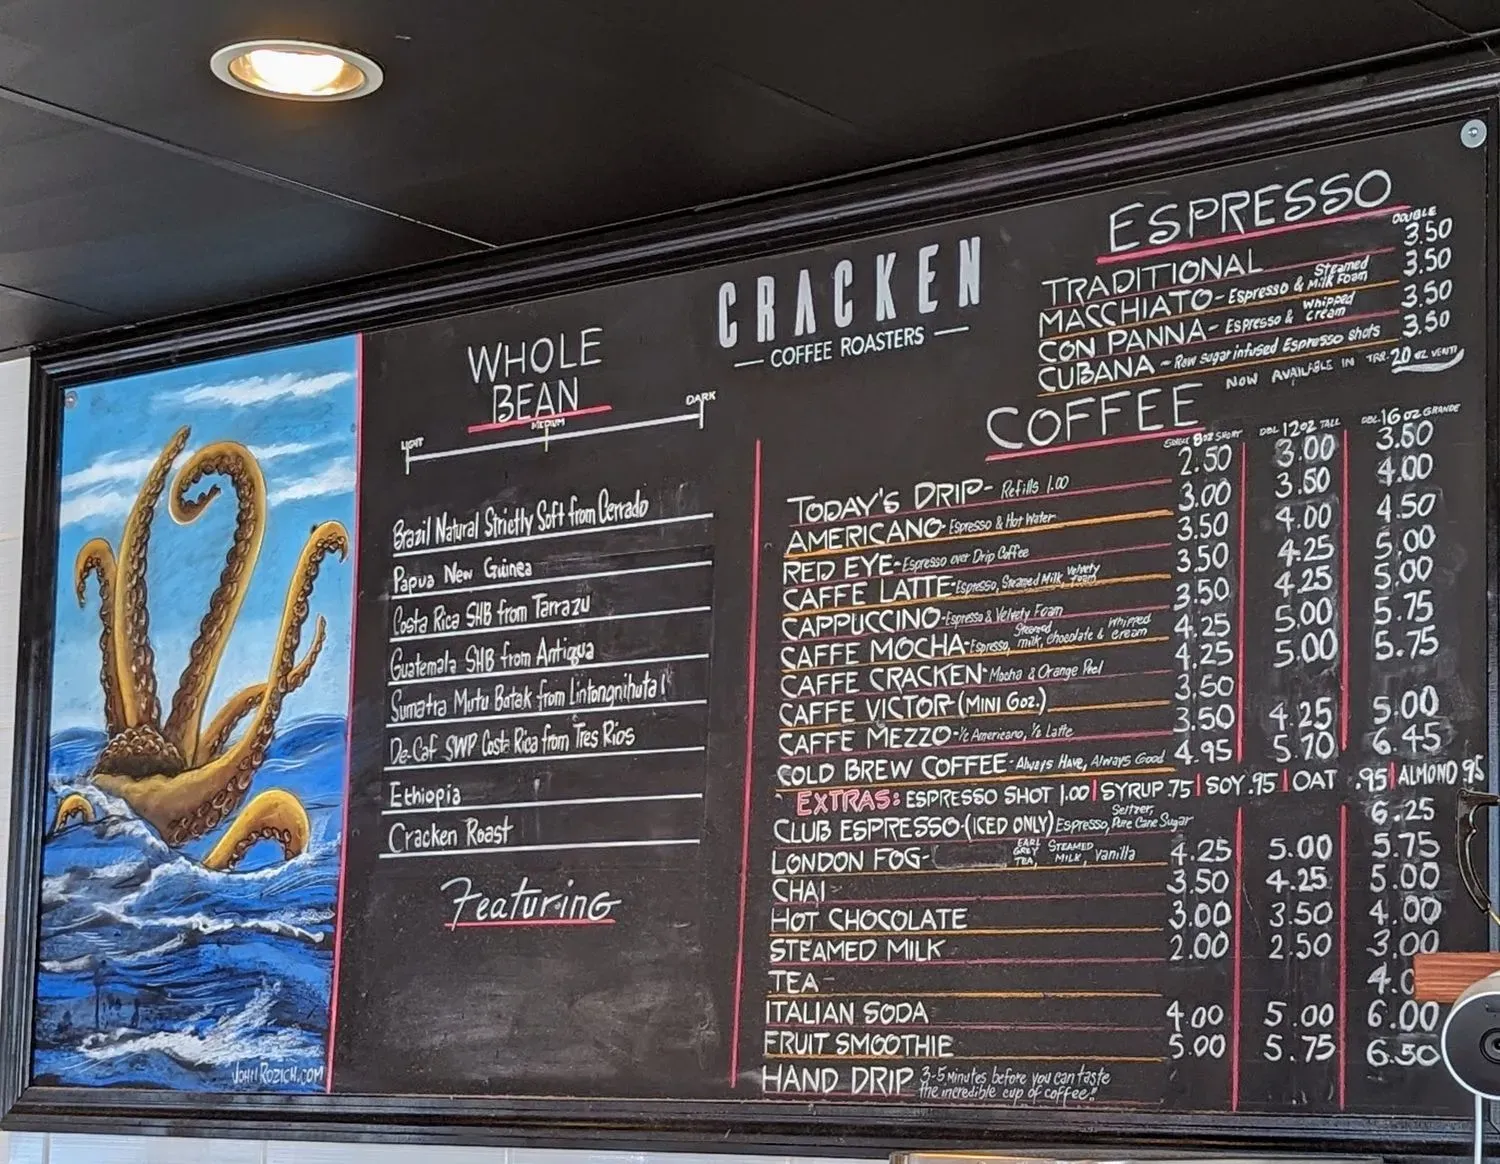 CRACKEN
COFFEE ROASTERS
WHOLE
BEAN
LIGHT MEDIUM DARK
Brazil Natural Strictly Soft from Cerrado
Papua New Guinea
Costa Rica SHB from Tarrazu
Guatemala SHB from Antiqua
Sumatra Mutu Batak from Lintongnihuta
De-Caf SWP Costa Rica from Tres Rios
Ethiopia
Cracken Roast
Featuring
JOHNROZICH.COM
ESPRESSO
DOUBLE
TRADITIONAL 3.50
MACCHIATO - Espresso & Steamed Milk Foam 3.50
CON PANNA - Espresso & Whipped cream 3.50
CUBANA - Raw Sugar infused Espresso shots 3.50
NOW AVAILABLE IN 20 OZ VENTI
COFFEE
8oz SHORT DBL 12oz TALL DBL 16oz GRANDE
TODAY'S DRIP - Refills 1.00 2.50 3.00 3.50
AMERICANO - Espresso & Hot Water 3.00 3.50 4.00
RED EYE - Espresso over Drip Coffee 3.50 4.00 4.50
CAFFE LATTE - Espresso, Steamed Milk, Velvety Foam 3.50 4.25 5.00
CAPPUCCINO - Espresso & Velvety Foam 3.50 4.25 5.00
CAFFE MOCHA - Espresso, Steamed milk, chocolate & Whipped cream 4.25 5.00 5.75
CAFFE CRACKEN - Mocha & Orange Peel 4.25 5.00 5.75
CAFFE VICTOR (MINI 6oz.) 3.50
CAFFE MEZZO - 1/2 Americano, 1/2 Latte 3.50 4.25 5.00
COLD BREW COFFEE - Always Have, Always Good 4.95 5.70 6.45
EXTRAS: ESPRESSO SHOT 1.00 | SYRUP .75 | SOY .95 | OAT .95 | ALMOND .95
CLUB ESPRESSO - (ICED ONLY) Espresso, Seltzer, Pure Cane Sugar 6.25
LONDON FOG - EARL GREY TEA, STEAMED MILK, Vanilla 4.25 5.00 5.75
CHAI 3.50 4.25 5.00
HOT CHOCOLATE 3.00 3.50 4.00
STEAMED MILK 2.00 2.50 3.00
TEA -
ITALIAN SODA 4.00 5.00 6.00
FRUIT SMOOTHIE 5.00 5.75 6.50
HAND DRIP 3-5 Minutes before you can taste
the incredible cup of coffee!